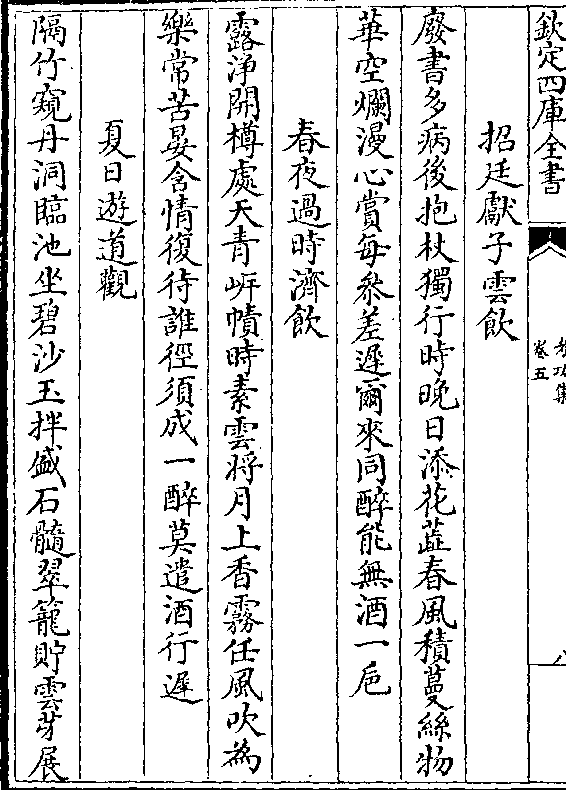 欽定四庫全書
卷五
八
招廷獻子雲飲
廢書多病後抱杖獨行時晚日添花蘂春風積蔓絲物
華空爛漫心賞每叅差遲爾來同醉能無酒一巵
春夜過時濟飲
露淨開樽處天青岸幘時素雲將月上香霧任風吹為
樂常苦晏含情復待誰徑須成一醉莫遣酒行遲
夏日遊道觀
隔竹窺丹洞臨池坐碧沙玉拌盛石髓翠籠貯雲芽展